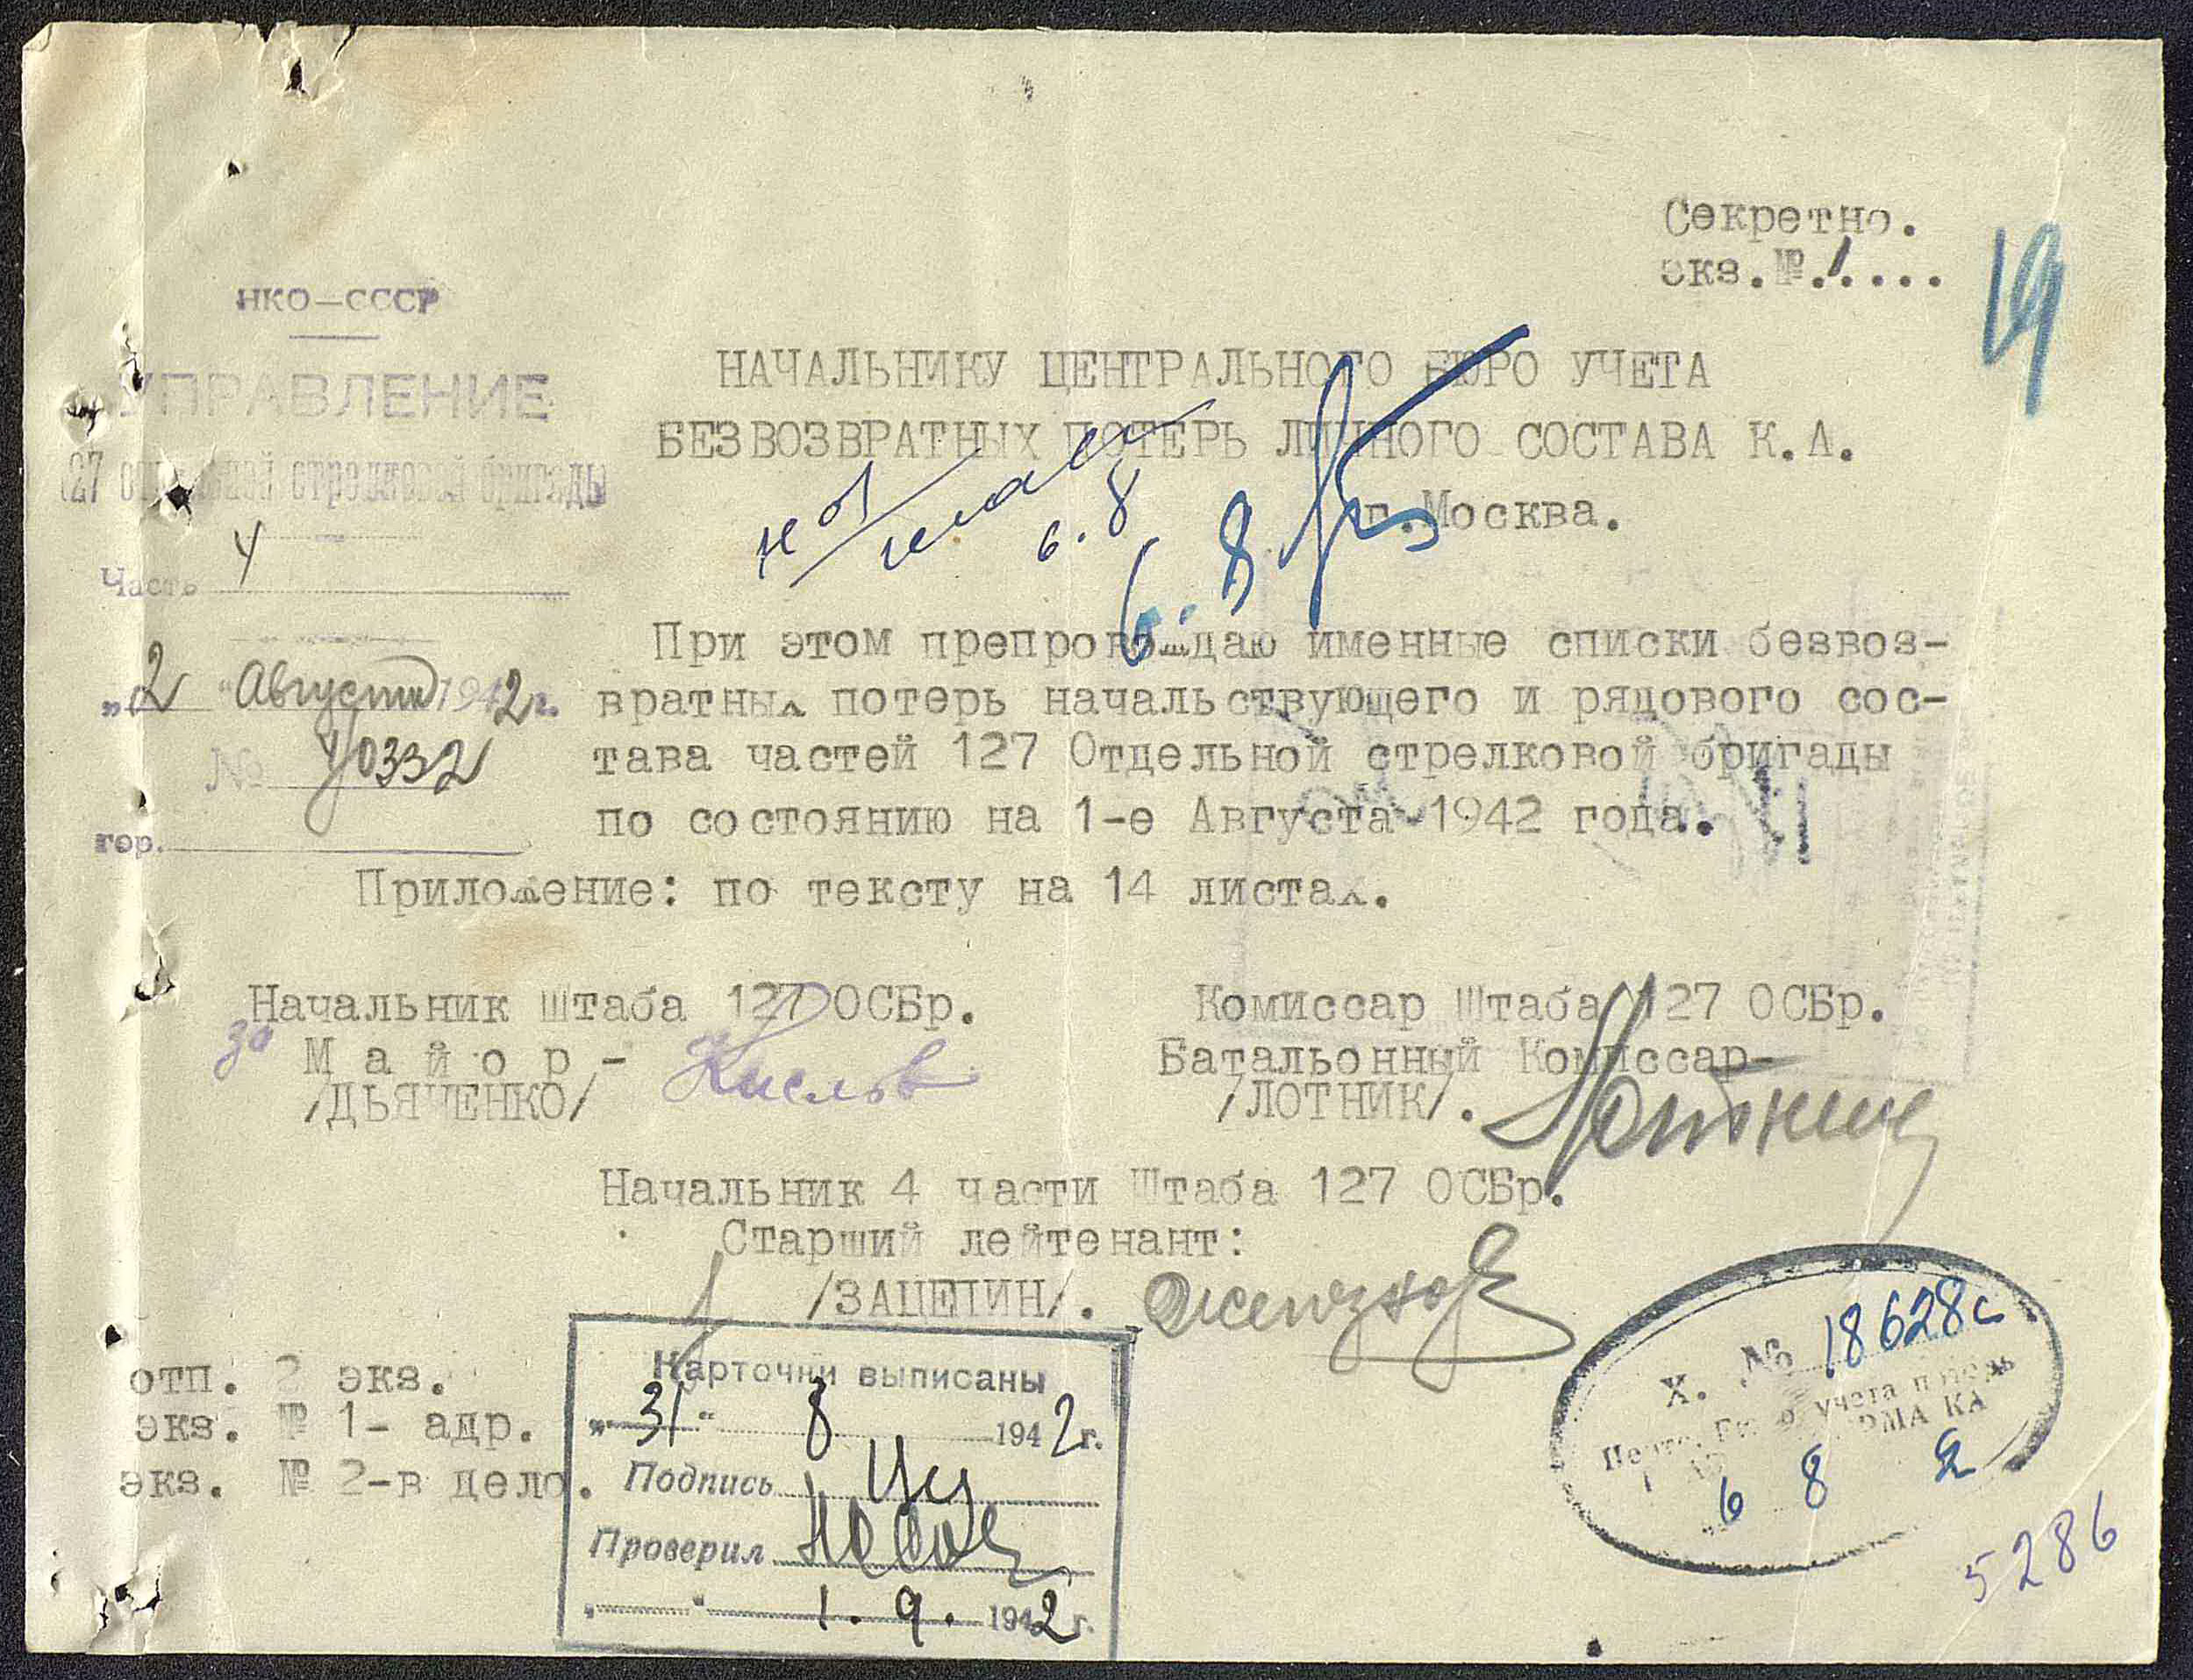 Секретно.
экз.№.1....
19
НКО-СССР
УПРАВЛЕНИЕ
127 отдельной стрелковой бригады
Часть 4
„2" Августа 1942г.
№ 4/0332
гор.
НАЧАЛЬНИКУ ЦЕНТРАЛЬНОГО БЮРО УЧЕТА
БЕЗВОЗВРАТНЫХ ПОТЕРЬ ЛИЧНОГО СОСТАВА К.А.
г.Москва.
6.8
6.8
При этом препровождаю именные списки безвоз-
вратных потерь начальствующего и рядового сос-
тава частей 127 Отдельной стрелковой бригады
по состоянию на 1-е Августа 1942 года.
Приложение: по тексту на 14 листах.
Начальник Штаба 127 ОСБр.
за Майор-
/ДЬЯЧЕНКО/
Комиссар Штаба 127 ОСБр.
Батальонный Комиссар-
/ЛОТНИК/. Лотник
Начальник 4 части Штаба 127 ОСБр.
Старший лейтенант:
/ЗАЦЕПИН/.
отп. 2 экз.
экз. № 1- адр.
экз. № 2-в дело.
Карточки выписаны
„31" 8 1942г.
Подпись
Проверил Носов
„ " 1.9. 1942г.
х. № 18628с
учета потерь
КА
6 8 2
5286